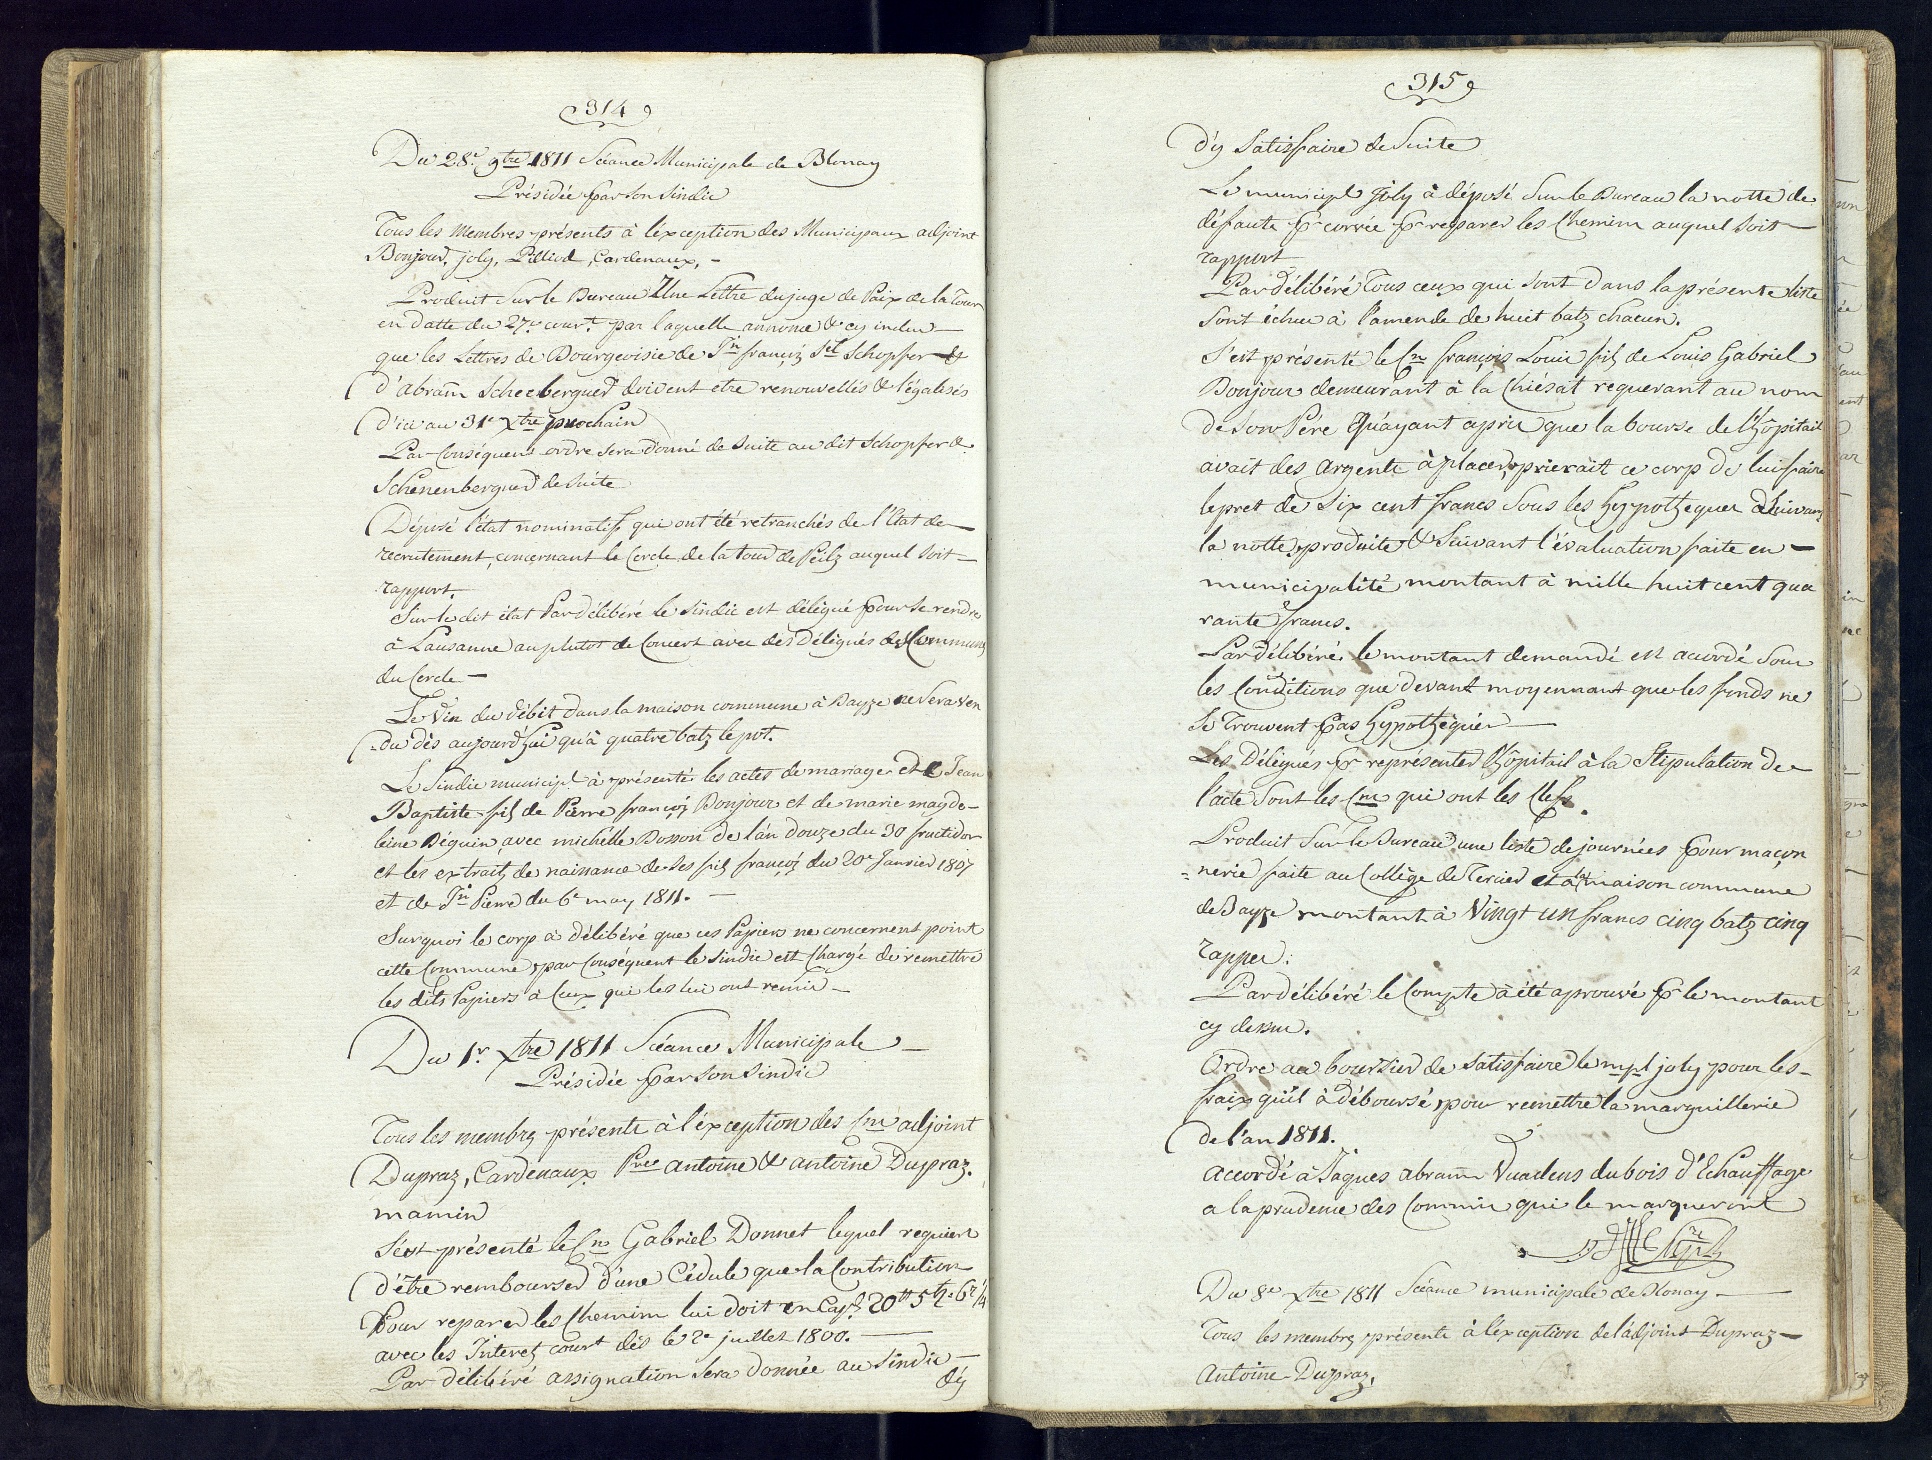 314
Du 28.e 9bre 1811 Séance Municipale de Blonay
Présidée par son sindic
Tous les Membres présents à l'exception des Municipaux adjoint
Bonjour, joly, Pilliod, Cardenaux, –
Produit sur le Bureau Une Lettre du juge de Paix de la Tour
en datte du 27.e cour.t par laquelle annonce & cy inclu –
que les Lettres de Bourgeoisie de Jn françois Sel Schopfer &
d'abram Scheeberguer doivent etre renouvellés & légalisés
d'ici au 31e Xbre prochain
Par Conséquent ordre sera donné de suite au dit Schopfer &
Schenenberguer de suite
Déposé l'état nominatif qui ont été retranchés de l'Etat de
recrutement, concernant le Cercle de la tour de Peilz auquel soit –
rapport.
Sur le dit état Par délibéré le sindic est délégué pour se rendre
à Lausanne au plutot de Concert avec des Délégués des Communes
du Cercle –
Le Vin du débit dans la maison commune à Bayze ne sera ven
du dès aujourd'hui qu'à quatre batz le pot.
Le Sindic municipl à présenté les actes de mariage de Jean
Baptiste fils de Pierre françois Bonjour et de marie magde-
leine Béguin, avec michelle Bosson de l'an douze du 30 fructidor
et les extraits de naissance de ses fils françois du 20e Janvier 1807
et de Jn Pierre du 6e may 1811. –
Surquoi le corp à délibéré que ces Papiers ne concernent point
cette Commune, par Conséquent le sindic est Chargé de remettre
les dits Papiers à Ceux qui les lui ont remis –
Du 1r Xbre 1811 Séance Municipale –
Présidée par son sindic
Tous les membres présents à l'exception des Cns adjoint
Dupraz, Cardenaux Pre antoine & antoine Dupraz.
mamin
S'est présenté le Cn Gabriel Donnet lequel requiert
d'être rembourser d'une Cédule que la Contribution
Pour reparer les Chemins lui doit en Capl. 20 5 6 1/4
avec les Interets court dès le 2e juillet 1800. –
Par délibéré assignation sera donnée au sindic –
d'y
315
d'y satisfaire de Suite
Le municipl joly à déposé sur le Bureau la notte de
défauts pr corvée pr reparer les Chemins auquel soit –
rapport
Par délibéré Tous ceux qui sont dans la présente liste
sont échus à l'amende de huit batz chacun.
S'est présenté le Cn françois Louis fils de Louis Gabriel
Bonjour demeurant à la Chiésat requerant au nom
de son Pére Qu'ayant apris que la bourse de l'hôpitail
avait des argents à placer, prierait ce corp de lui faire
le pret de six cent francs sous les hypotheques suivant
la notte produite & suivant l'évaluation faite en –
municipalité montant à mille huit cent qua
rante francs.
Par délibéré, le montant demandé est accordé sous
les Conditions que devant moyennant que les fonds ne
se trouvent pas hypothéqués –
Les Délégués pr représenter l'hôpitail à la Stipulation de
l'acte sont les Cns qui ont les Clefs.
Produit sur le Bureau une liste de journées pour maçon
nerie faite au Collège de Tercier et à la maison commune
de Bayze montant à Vingt un francs cinq batz cinq
rappes.
Par délibéré le Compte à été aprouvé pr le montant
cy dessus.
Ordre au boursier de satisfaire le mpl joly pour les –
fraix qu'il à déboursé pour remettre la marguillerie
de l'an 1811.
accordé à Jaques abram Vuadens du bois d'Echauffage
a la prudence des Commis qui le marqueront
Du 8e Xbre 1811 Séance municipale de Blonay –
Tous les membres présents à l'exception de l'adjoint Dupraz –
Antoine Dupraz,